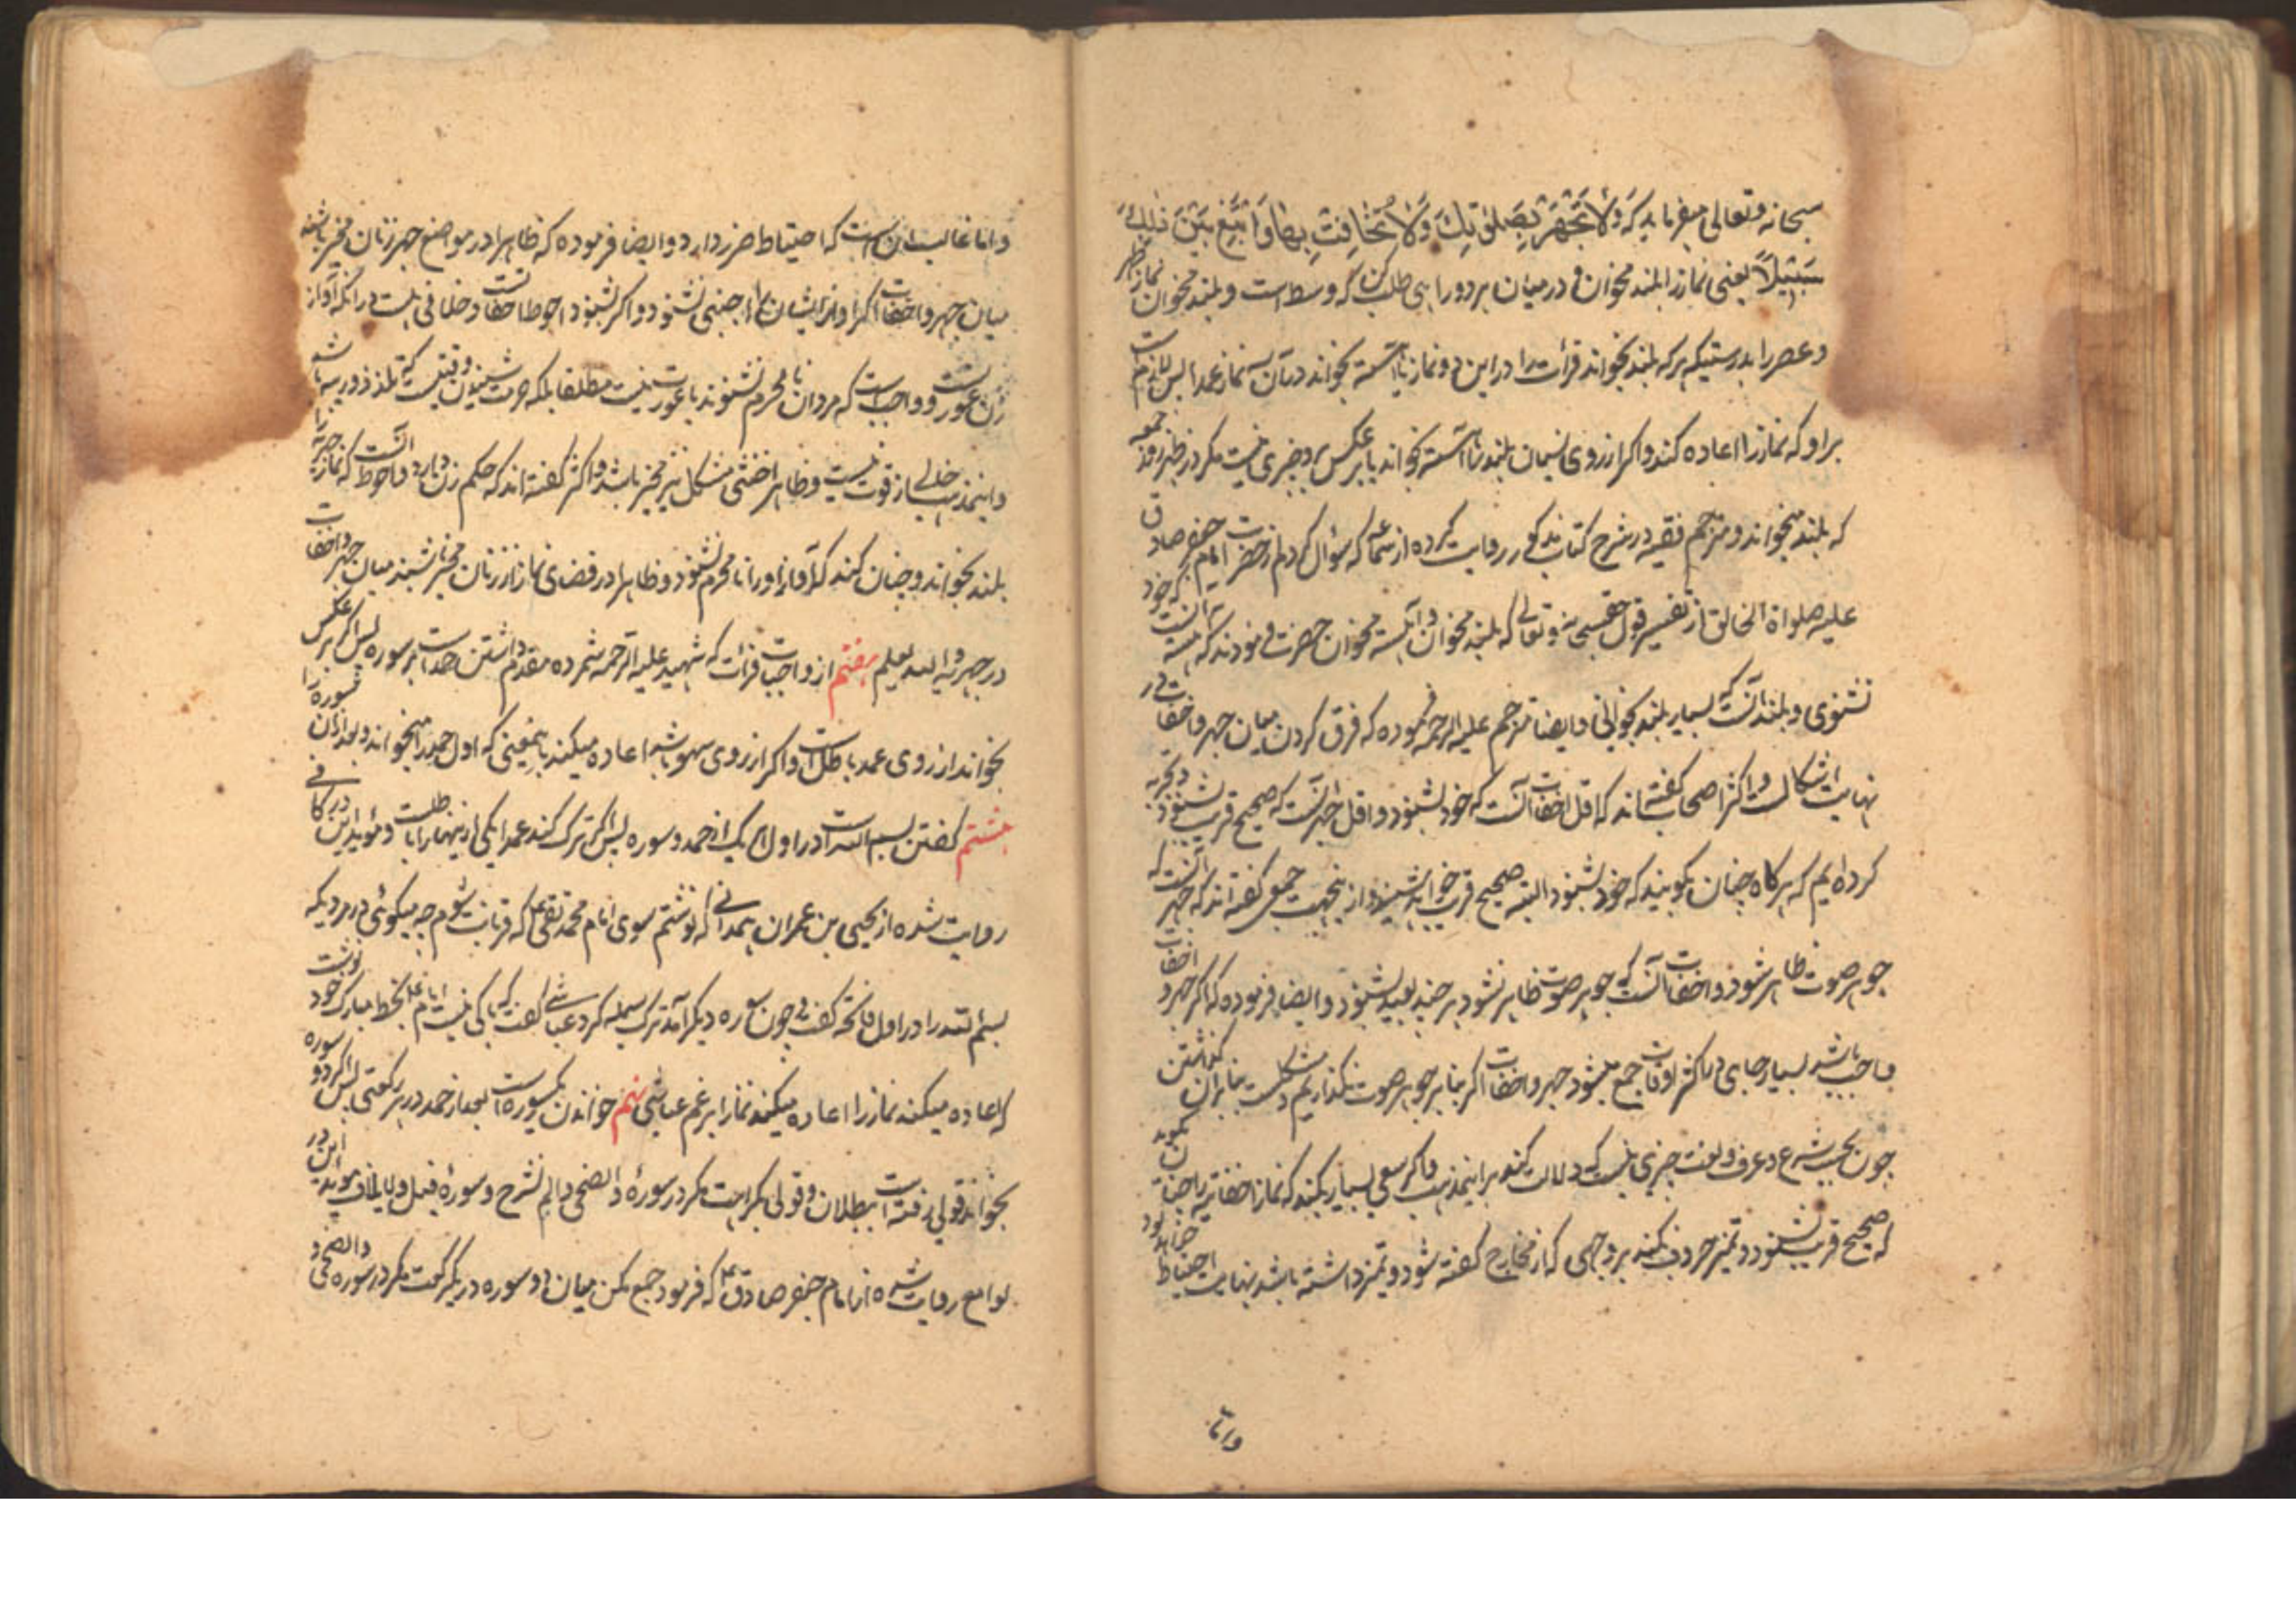 سبحانه و تعالی میفرماید که وَلَا تَجْهَرْ بِصَلٰوتِكَ وَلَا تُخَافِتْ بِهَا وَابْتَغِ بَيْنَ ذٰلِكَ
سَبِيْلًا یعنی نماز را بلند مخوان و در میان هر دو راهی طلب کن که وسط است و بلند مخوان نماز ظهر
و عصر را بدرستیکه هر که بلند بخواند قرأت را در این دو نماز یا آهسته بخواند در آن سه نماز عمدا پس لازم است
بر او که نماز را اعاده کند و اگر از روی نسیان بلند را آهسته بخواند یا بر عکس برو چیزی نیست مکر در ظهر روز جمعه
که بلند میخواند و مترجم فقیه در شرح کتاب مذکور روایت کرده از سماعه که سؤال کردم از حضرت امام جعفر صادق
علیه صلواة الخالق از تفسیر قول حقسبحانه و تعالی که بلند مخوان و آهسته مخوان حضرت فرمودند که آهسته آنست که خود
نشنوی و بلند آنست که بسیار بلند بخوانی و ایضا مترجم علیه الرحمه فرموده که فرق کردن میان جهر و اخفات در
نهایت اشکالست و اکثر اصحاب گفته‌اند که اقل اخفات آنست که خود بشنود و اقل جهر آنست که صحیح قریب بشنود و تجربه
کرده‌ایم که هرکاه چنان بکویند که خود بشنود البته صحیح قریب خواهد شنید و از ینجهت جمعی گفته‌اند که جهر آنست که
جوهر صوت ظاهر شود و اخفات آنست که جوهر صوت ظاهر نشود هر چند بعید بشنود و ایضا فرموده که اگر جهر و اخفات
واجب باشد بسیار جای در اکثر اوقات جمع میشود جهر و اخفات اگر بنا بر جوهر صوت نگذاریم و مشکلست بنا بر آن گذاشتن
چون بحسب شرع و عرف و لغت چیزی نیست که دلالت کند بر اینمذهب و اگر سعی بسیار بکند که نماز اخفاتیه را چنان بکوید
که صحیح قریب نشنود و تمیز حروف بکند بر وجهی که از مخارج گفته شود و تمیز داشته باشد نهایت احتیاط خواهد بود
و اما
و اما غالب این است که احتیاط ضرر دارد و ایضا فرموده که ظاهرا در مواضع جهر زنان مخیر باشند
میان جهر و اخفات اگر آواز ایشان را اجنبی نشنود و اگر بشنود احوط اخفاتست و خلافی نیست در آنکه آواز
زن عورتست و واجب است که مردان نامحرم نشنوند یا عورت نیست مطلقا بلکه حرمت شنیدن وقتیست که تلذذ و ریبه باشد
و اینمذهب خالی از قوت نیست و ظاهرا خنثی مشکل نیز مخیر باشد و اکثر گفته‌اند که حکم زن دارد و احوط آنست که نماز جهریه را
بلند بخواند و چنان کند که آواز او را نامحرم نشنود و ظاهرا در قضای نماز از زنان مخیر باشند میان جهر و اخفات
در جهریه و الله یعلم هفتم از واجبات قرأت که شهید علیه الرحمه شمرده مقدم داشتن حمد است بر سوره پس اگر بر عکس
بخواند از روی عمد باطل است و اگر از روی سهو باشد اعاده میکند باینمعنی که اول حمد را میخواند و بعد از آن سوره را
هشتم گفتن بسم الله است در اول هر یک از حمد و سوره پس اگر ترک کند عمدا یکی از ینها را باطلست و مؤید این در کافی
روایت شده از یحیی بن عمران همدانی که نوشتم سوی امام محمد تقی ع که قربانت شوم چه میکوئی در مردیکه
بسم الله را در اول فاتحه گفت و چون سوره دیگر آمد ترک بسمله کرد عباسی گفت که باکی نیست امام ع بخط مبارک خود نوشت
که اعاده میکند نماز را اعاده میکند نماز را برغم عباسی نهم خواندن یکسوره است بعد از حمد در هر رکعتی پس اگر دو سوره
بخواند قولی رفته است ببطلان و قولی بکراهت مکر در سورۀ والضحی و الم نشرح و سورۀ فیل و لایلاف مؤید این در
لوامع روایت شده از امام جعفر صادق ع که فرمود جمع مکن میان دو سوره در یک رکعت مکر در سوره والضحی و